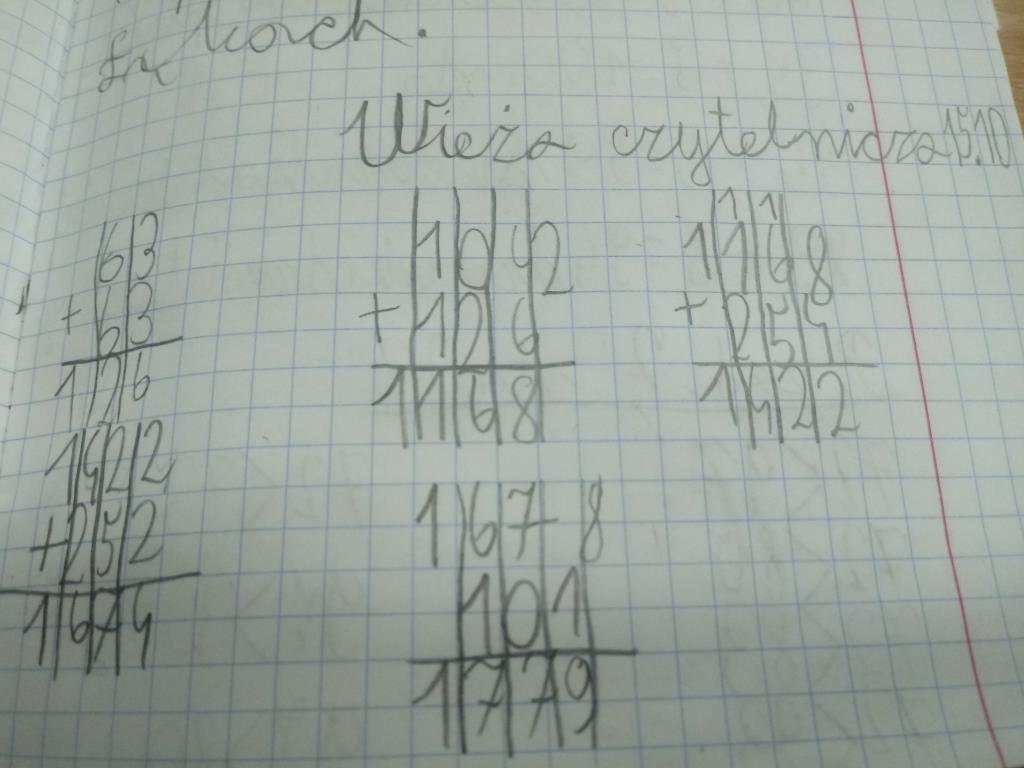 Wieża czytelnicza 15.10
63
+ 63
126
1042
+ 126
1168
11
1168
+ 254
1422
1422
+ 252
1674
1678
101
1779